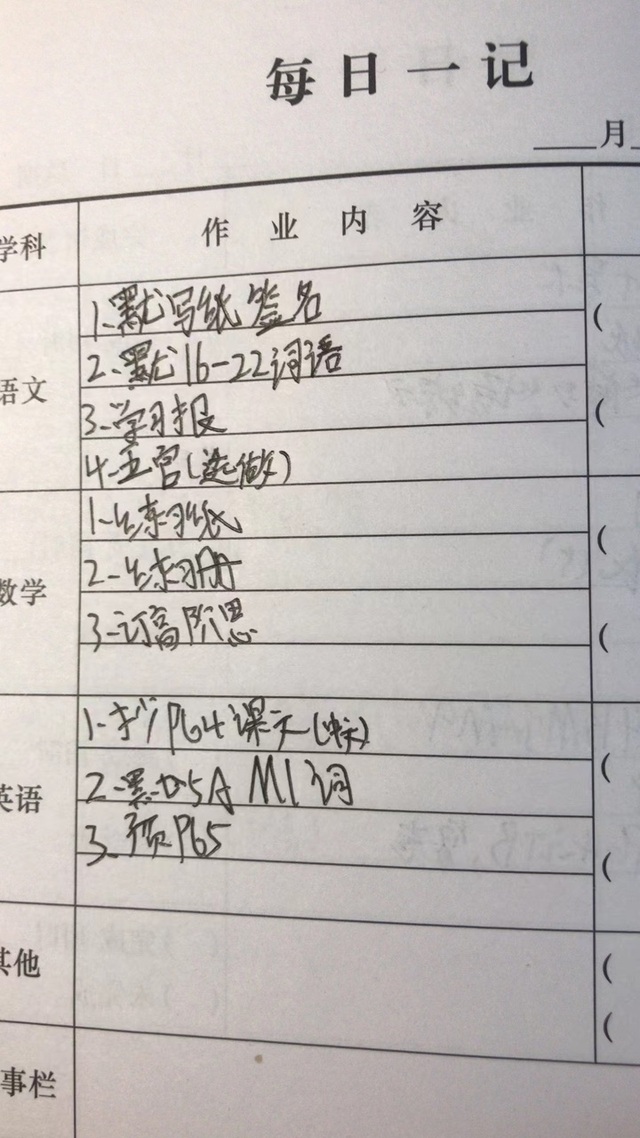 每日一记
月
学科 作业内容
语文
1.默写纸签名
2.默16-22词语
3.学习报
4.五宫(选做)
数学
1.练习纸
2.练习册
3.订高阶思
英语
1.扩P64课文(中文)
2.默 5A M1词
3.预P65
其他
事栏